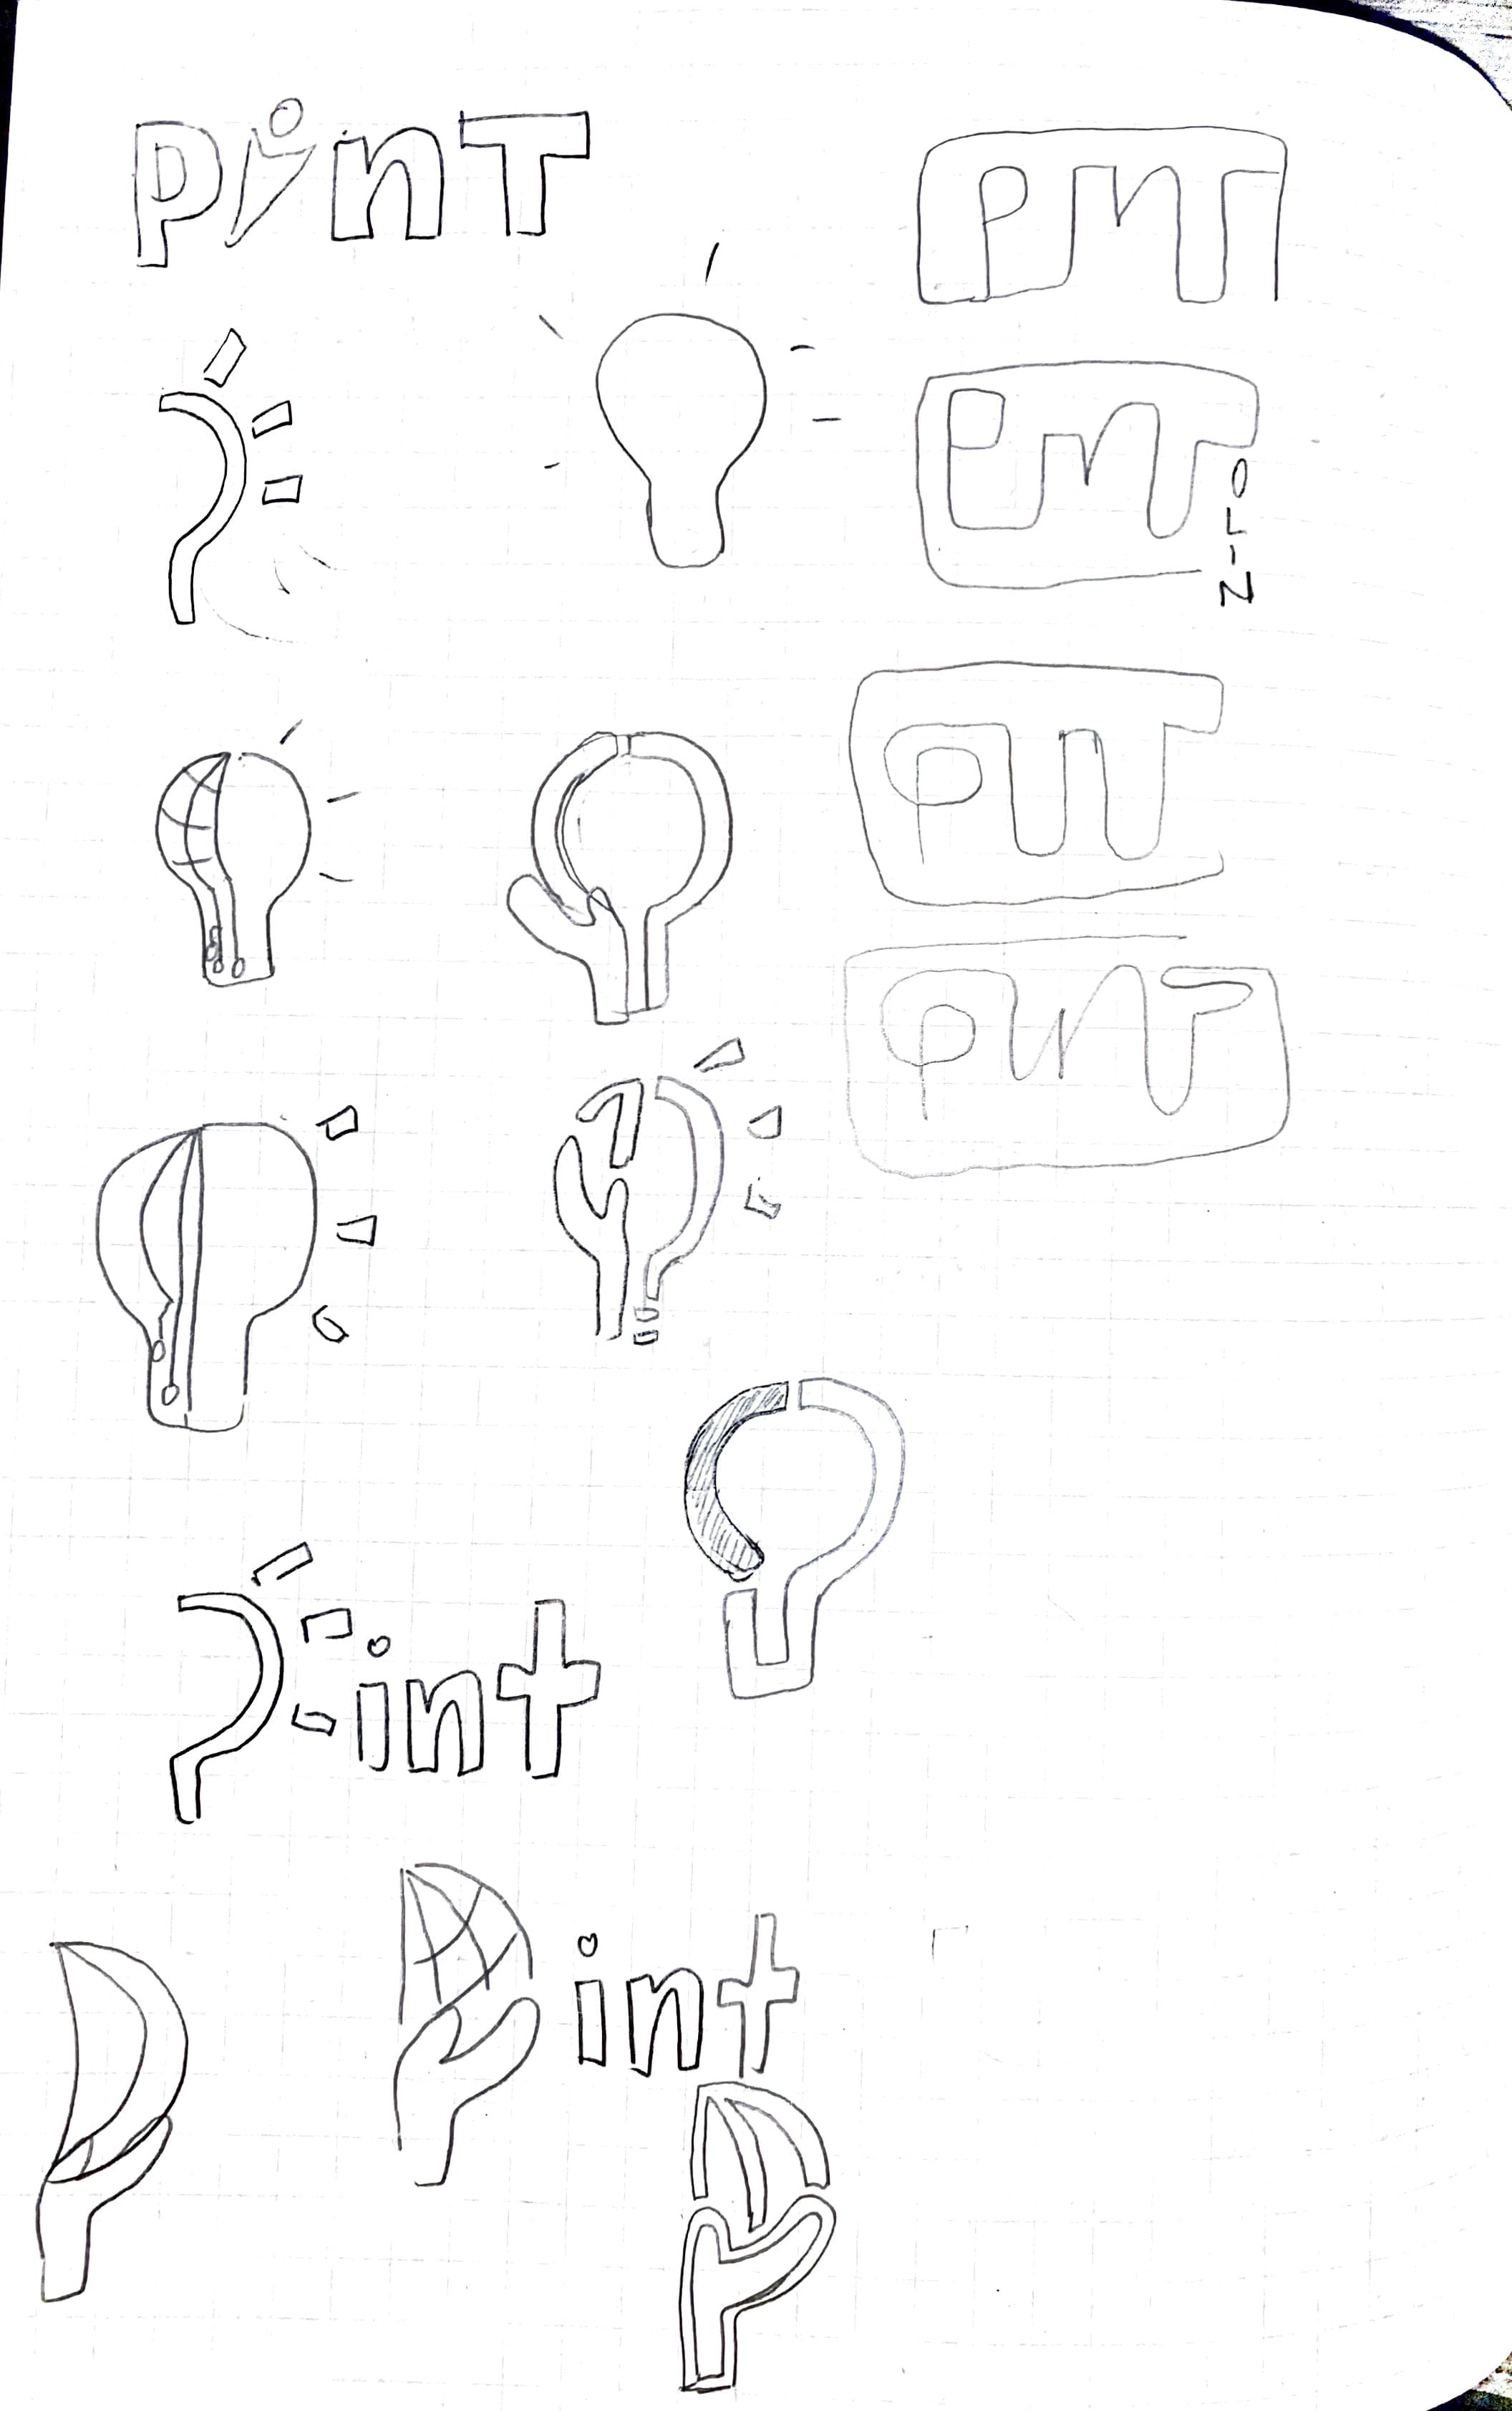 PinT
PINT
PINT
OLIN
PINT
PINT
int
int